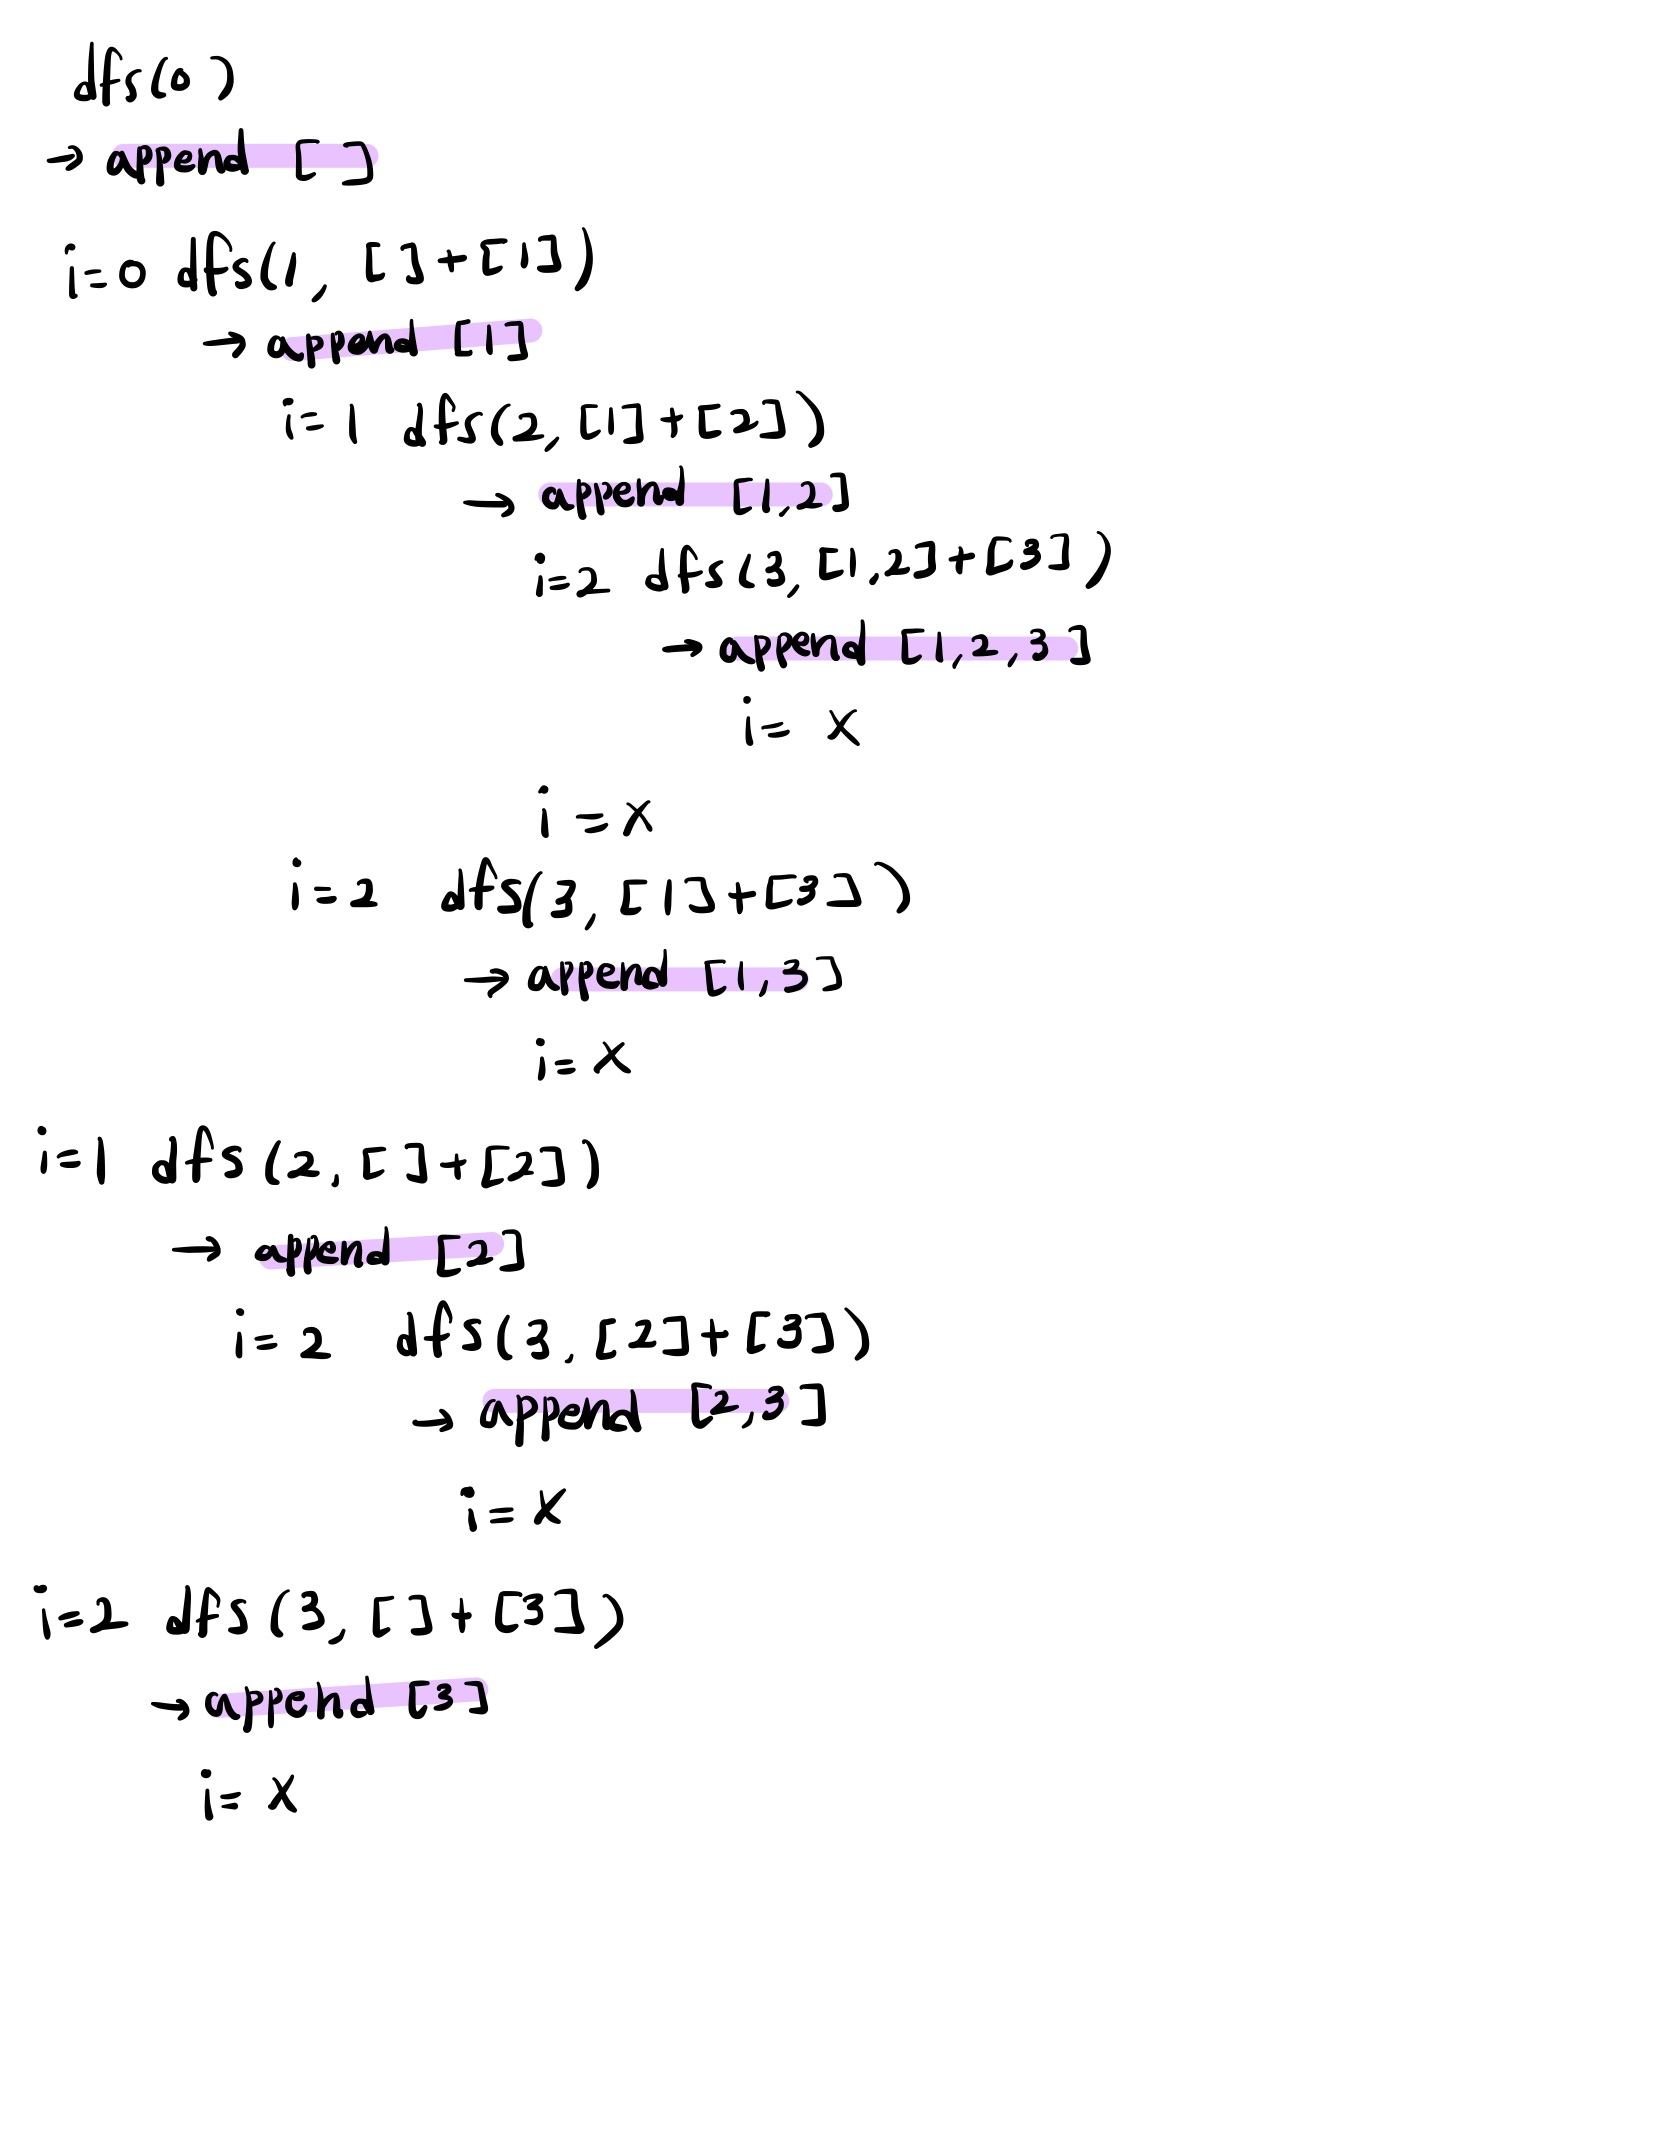 dfs(0 )
→ append [ ]
i=0 dfs(1, [ ]+[1])
→ append [1]
i=1 dfs(2,[1]+[2])
→ append [1,2]
i=2 dfs(3,[1,2]+[3])
→ append [1,2,3]
i= x
i = x
i=2 dfs(3,[1]+[3])
→ append [1,3]
i= x
i=1 dfs(2,[ ]+[2])
→ append [2]
i=2 dfs(3,[2]+[3])
→ append [2,3]
i= x
i=2 dfs(3, [ ]+[3])
→ append [3]
i= x